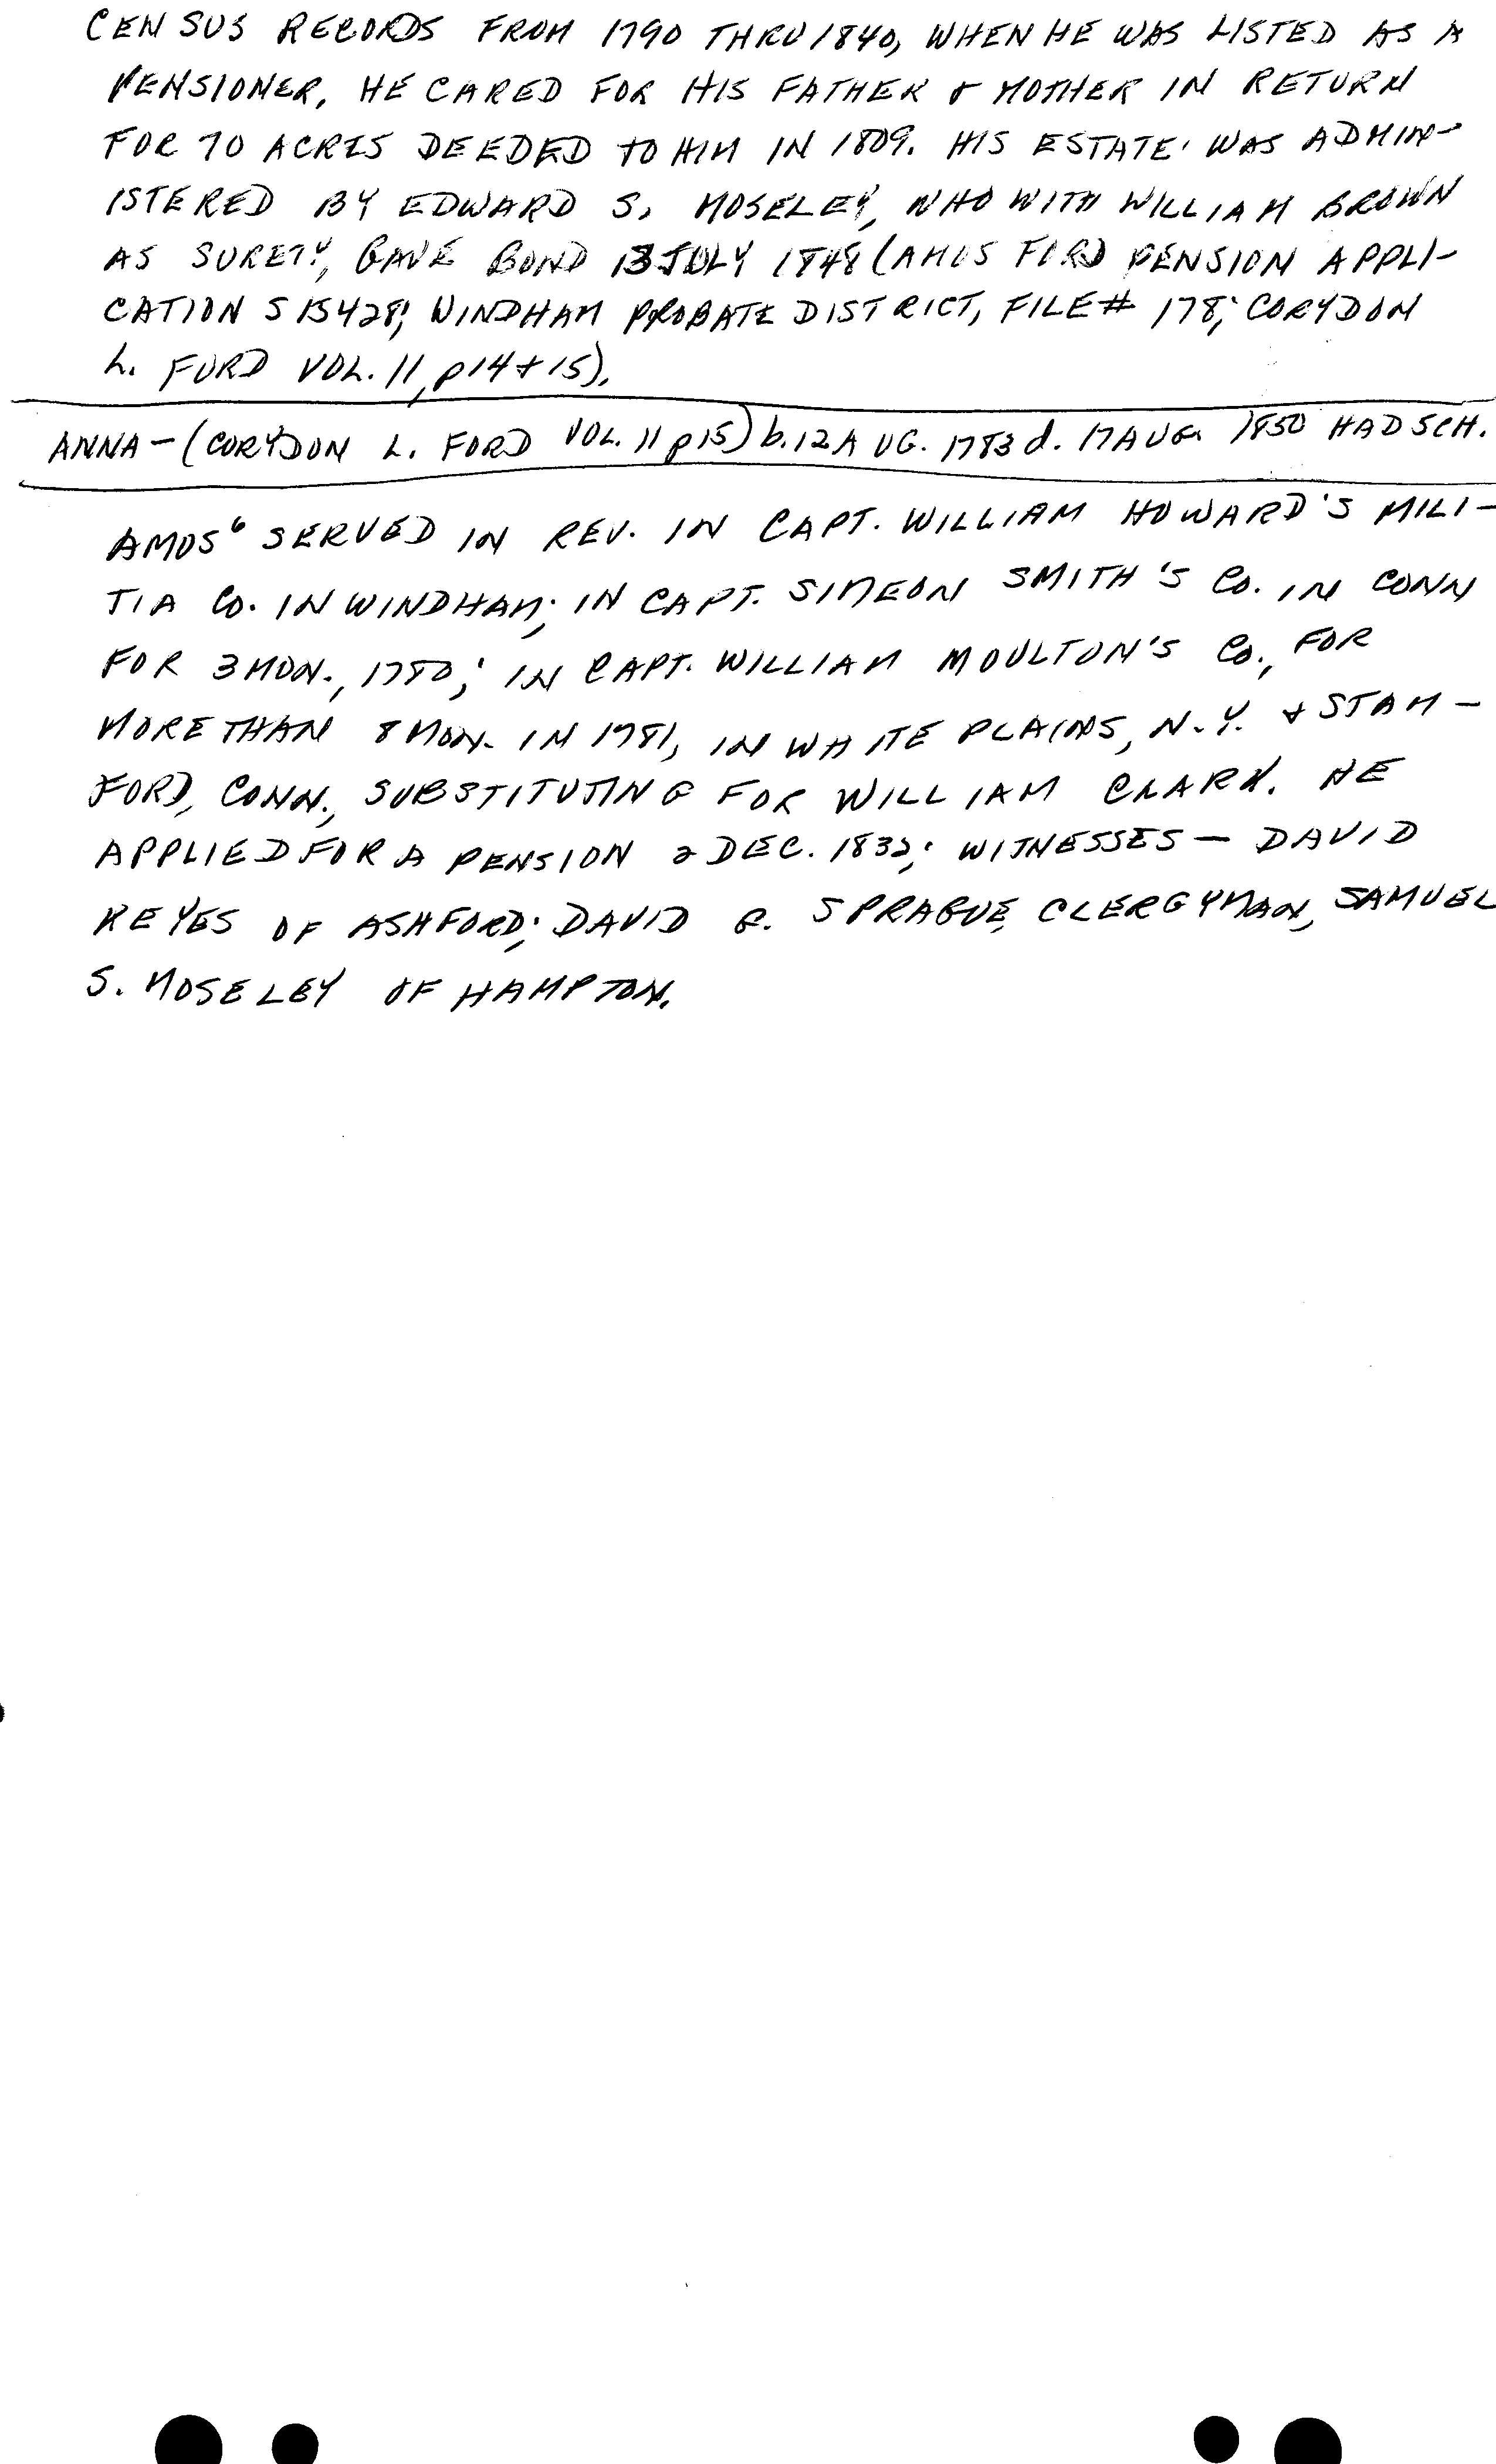 CENSUS RECORDS FROM 1790 THRU 1840, WHEN HE WAS LISTED AS A
PENSIONER, HE CARED FOR HIS FATHER & MOTHER IN RETURN
FOR 70 ACRES DEEDED TO HIM IN 1809. HIS ESTATE WAS ADMIN-
ISTERED BY EDWARD S. MOSELEY, WHO WITH WILLIAM BROWN
AS SURETY, GAVE BOND 13 JULY 1848 (AMOS FORD PENSION APPLI-
CATION S 15428; WINDHAM PROBATE DISTRICT, FILE # 178; CORYDON
L. FORD VOL. 11, p 14 + 15).
ANNA - (CORYDON L. FORD VOL. 11 p 15) b. 12 AUG. 1783 d. 17 AUG. 1850 HAD SCH.
AMOS⁶ SERVED IN REV. IN CAPT. WILLIAM HOWARD'S MILI-
TIA CO. IN WINDHAM; IN CAPT. SIMEON SMITH'S CO. IN CONN
FOR 3 MON., 1780; IN CAPT. WILLIAM MOULTON'S CO., FOR
MORE THAN 8 MON. IN 1781, IN WHITE PLAINS, N.Y. + STAM-
FORD, CONN., SUBSTITUTING FOR WILLIAM CLARK. HE
APPLIED FOR A PENSION 2 DEC. 1832; WITNESSES - DAVID
KEYES OF ASHFORD; DAVID G. SPRAGUE, CLERGYMAN, SAMUEL
S. MOSELEY OF HAMPTON.